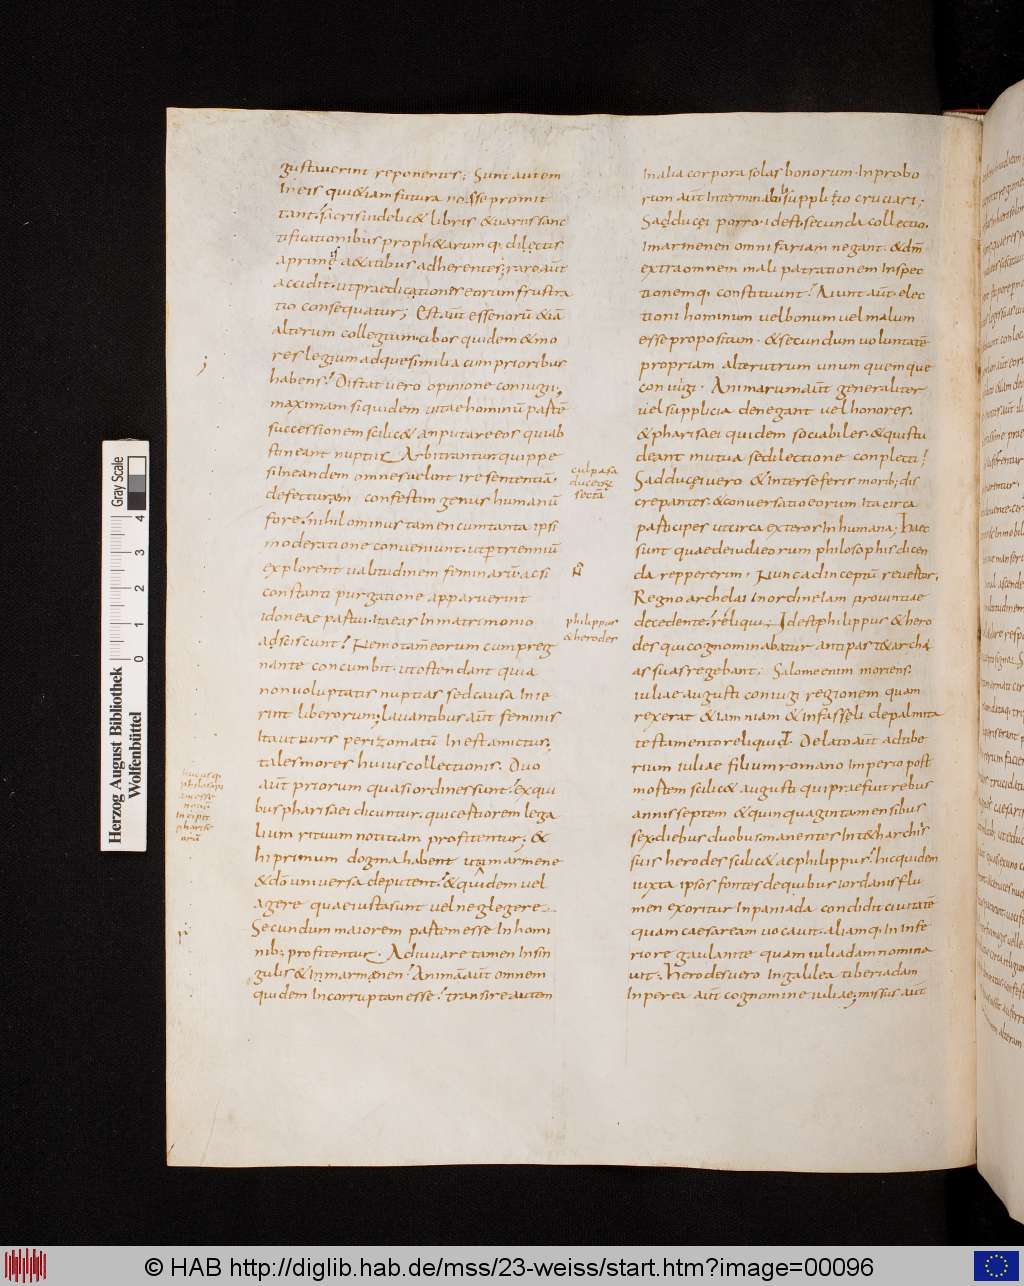 gustauerint reponentes; Sunt autem
In eis qui &iam futura nosse promit
tant. sacris uidelic& libris & uariis sanc
tificationibus proph&arum q; dilectis
a primis a&atibus adherentes; raro aut
accidit. ut praedicationes eorum frustra
tio consequatur; Est aut essenorū &iā
alterum collegium. cibos quidem & mo
res legium ad que similia cum prioribus
habens. Distat uero opinione coniugii;
maximam siquidem uitae hominū partē
successionem scilic& amputare eos qui ab
stineant nuptiis. Arbitrantur quippe
si In eandem omnes uelint ire sententiā.
defecturam confestim genus humanū
fore. nihilominus tamen cum tanta ipsi
moderatione conueniunt. ut p triennium
explorent ualitudinem feminarū. ac si
constanti purgatione apparuerint
idoneae partui. Ita eas In matrimonio
adsciscunt. Nemo tam eorum cum preg
nante concumbit. ut ostendant quia
non uoluptatis nuptias sed causa Inie
rint liberorum. lauantibus aut feminis
Ita ut uiris perizomatū Inest amictus;
tales mores huius collectionis. Duo
aut priorum quasi ordines sunt. ex qui
bus pharisaei dicuntur. qui certiorem lega
lium rituum notitiam profitentur. &
hi primum dogma habent ut Imarmene
& dō uniuersa deputent. & quidem uel
agere quae iusta sunt uel neglegere
Secundum maiorem partem esse In homi
nib; profitentur. Adiuuare tamen In sin
gulis & Inmarmenen. Animā aut omnem
quidem Incorruptam esse. transire autem
;
hucusq;
philosop
Incipit
phariseorū
In alia corpora solas bonorum. Inprobo
rum aut Interminabili supplicio cruciari;
Sadducei porro. id est secunda collectio.
Imarmenen omnifariam negant. & dm
extra omnem mali patrationem Inspec
tionemq; constituunt. Aiunt aut. elec
tioni hominum uel bonum uel malum
esse propositum. & secundum uoluntatē
propriam alterutrum unum quemque
coniugi. Animarum aut generaliter
uel supplicia denegant uel honores.
& pharisaei quidem sociabiles. & qui stu
deant mutua se dilectione conplecti.
Sadducei uero & Inter se feris morib; dis
crepantes. & conuersatio eorum Ita circa
participes ut circa exteros Inhumana; haec
sunt quae de iudaeorum philosophis dicen
da reppererim. Nunc ad inceptū reuertor.
Regno archelai Inordinelam prouintiae
decedente. reliqui. Id est philippus & hero
des qui cognominabatur antipas t&archi
as suas regebant. Salome enim moriens.
iuliae augusti coniugi regionem quam
rexerat & iamniam & In fasseli de palmita
testamento reliquid. Delato aut ad tibe
rium iuliae filium romano Imperio post
mortem scilic& augusti qui praefuit rebus
annis septem & quinquaginta mensibus
sex. diebus duobus. manentes In t&harchiis
suis herodes scilic& ac philippus. hic quidem
iuxta ipsos fontes de quibus iordanis flu
men exoritur In paniada condidit ciuitatē
quam caesaream uocauit. aliamq; In Infe
riore gaulanite quam iuliadam nomina
uit. herodes uero In galilea tiberiadam
In perea aut cognomine iuliae; missus aut
culpa sa
duceorū
secta
philippus
& herodes
Herzog August Bibliothek
Wolfenbüttel
0 1 2 3 4
Gray Scale
© HAB http://diglib.hab.de/mss/23-weiss/start.htm?image=00096